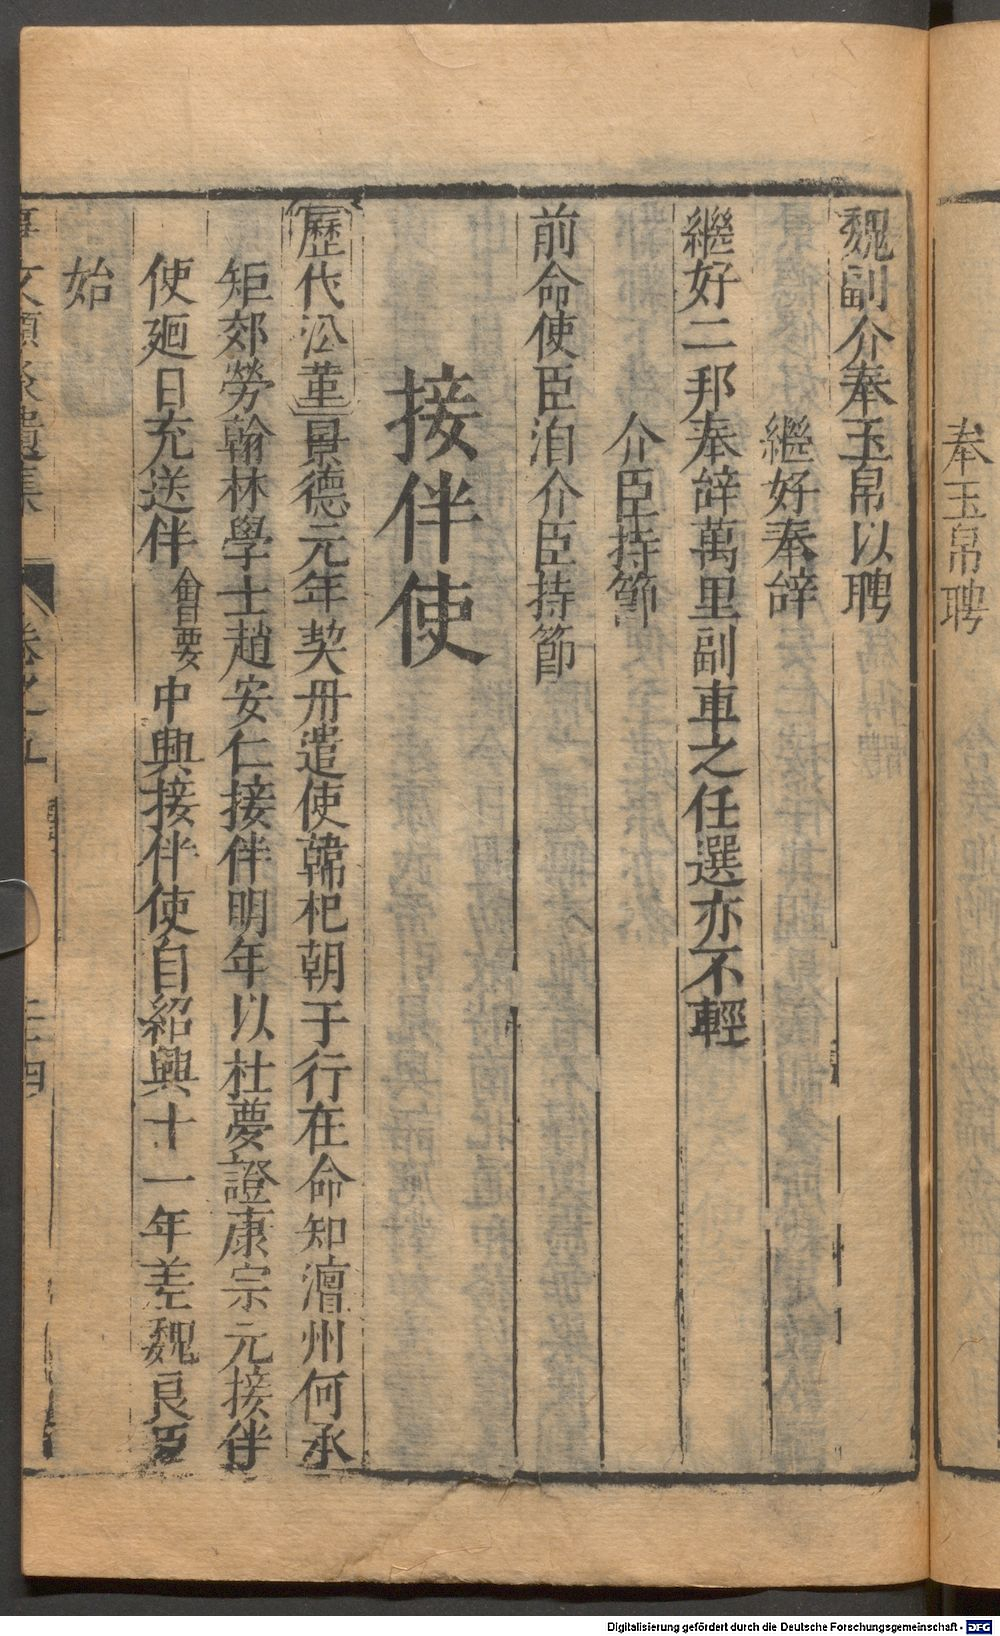 奉玉帛聘
魏副介奉玉帛以聘
繼好奉辭
繼好二邦奉辭萬里副車之任選亦不輕
介臣持節
前命使臣洎介臣持節
接伴使
歷代㳂革景德元年契丹遣使韓杞朝于行在命知澶州何承
矩郊勞翰林學士趙安仁接伴明年以杜夢證康宗元接伴
使廻日充送伴會要中興接伴使自紹興十一年差魏良臣
始
事文類聚遺集 卷之五 二十四
Digitalisierung gefördert durch die Deutsche Forschungsgemeinschaft - DFG